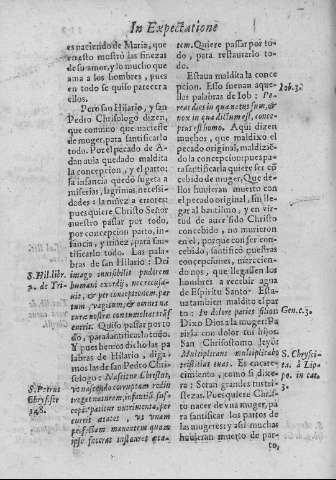 In Expectatione
es nacimiento de Maria, que
en esto mostrò las finezas
de su amor, y lo mucho que
ama a los hombres, pues
en todo se quiso parecer a
ellos.
Pero san Hilario, y san
Pedro Chrisologo dizen,
que conuino que naciesse
de muger, para santificarlo
todo. Por el pecado de A-
dan auia quedado maldita
la concepcion, y el parto;
la infancia quedò sugeta a
miserias, lagrimas, necessi-
dades: la niñez a errores;
pues quiere Christo Señor
nuestro passar por todo,
por concepcion, parto, in-
fancia, y niñez, para san-
tificarlo todo. Las palabras
de san Hilario: Dei
imago inuisibilis pudorem
humani exordij, non recusa-
uit, & per conceptionem, par-
tum, vagitum, & cunas na-
turæ nostræ contumelias trans-
currit. Quiso passar por to-
do, para santificarlo todo.
Y pues hemos dicho las pa-
labras de Hilario, diga-
mos las de san Pedro Chri-
sologo: Nascitur Christus,
vt nascendo corruptam redin-
tegret naturam, infantiã sus-
cepit, patitur nutrimenta, per-
currit ætates, vt vnam
perfectam manentem quam
ipse fecerat instauret æta-
S. Hil. libr.
2. de Tri-
S. Petrus
Chrysost.
148.
tem. Quiere passar por to-
do, para restaurarlo to-
do.
Estaua maldita la conce-
pcion. Esso suenan aque-
llas palabras de Iob: Pe-
reat dies in qua natus sum, &
nox in qua dictum est, conce-
ptus est homo. Aqui dizen
muchos, que maldixo el
pecado original, maldizien-
do la concepcion: pues pa-
ra santificarla quiere ser cõ-
cebido de muger. Que de-
llos huuieran muerto con
el pecado original, sin lle-
gar al bautismo, y en vir-
tud de auer sido Christo
concebido, no murieron
en el, porque con ser con-
cebido, santificò nuestras
concepciones, mereciendo-
nos, que llegassen los
hombres a recebir agua
de Espiritu Santo. Estaua
tambien maldito el par-
to: In dolore paries filios:
Dixo Dios a la muger: Pa-
riràs con dolor tus hijos
San Chrisostomo leyò:
Multiplicans multiplicabo
tristitias tuas. Es encare-
cimiento, como si dixe-
ra: Seran grandes tus tri-
stezas. Pues quiere Chris-
to nacer de vna muger, pa-
ra santificar los partos de
las mugeres: y assi muchas
huuieran muerto de par-
to,
Iob. 3.
Gen. c. 3.
S. Chrysos-
ta. à Lip-
po. in cat.
3.